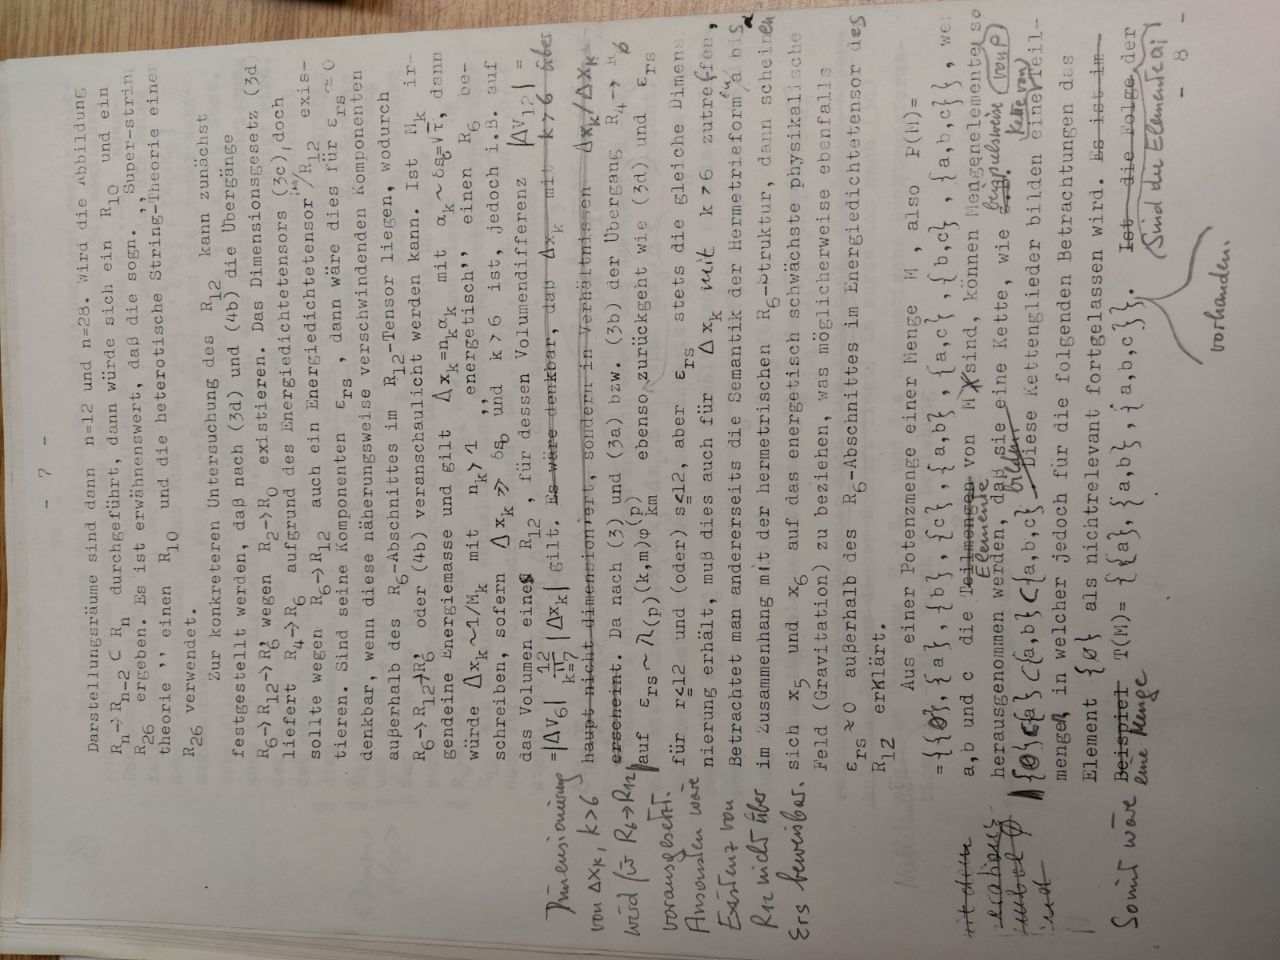 - 7 -
Darstellungsräume sind dann n=12 und n=28. Wird die Abbildung
R_n→R_n-2 ⊂ R_n durchgeführt, dann würde sich ein R_10 und ein
R_26 ergeben. Es ist erwähnenswert, daß die sogn. ,, Super-string
theorie ,, einen R_10 und die heterotische String-Theorie einen
R_26 verwendet.
Zur konkreteren Untersuchung des R_12 kann zunächst
festgestellt werden, daß nach (3d) und (4b) die Übergänge
R_6→R_12→R_6 wegen R_2→R_0 existieren. Das Dimensionsgesetz (3d)
liefert R_4→R_6 aufgrund des Energiedichtetensors (3c), doch
sollte wegen R_6→R_12 auch ein Energiedichtetensor im R_12 exis-
tieren. Sind seine Komponenten ε_rs , dann wäre dies für ε_rs ≈ 0
denkbar, wenn diese näherungsweise verschwindenden Komponenten
außerhalb des R_6-Abschnittes im R_12-Tensor liegen, wodurch
R_6→R_12→R_6, oder (4b) veranschaulicht werden kann. Ist M_k ir-
gendeine Energiemasse und gilt Δx_k=n_kα_k mit α_k ~ δs_6=√τ, dann
würde Δx_k~1/M_k mit n_k > 1 ,, energetisch,, einen R_6 be-
schreiben, sofern Δx_k ≫ δs_6 und k > 6 ist, jedoch i.B. auf
das Volumen eines R_12 , für dessen Volumendifferenz |ΔV_12| =
=|ΔV_6| ∏ |Δx_k| gilt. Es wäre denkbar, daß Δx_k mit k>6 über
12
k=7
haupt nicht dimensioniert, sondern in Verhältnissen Δx_k/Δx_k
erscheint. Da nach (3) und (3a) bzw. (3b) der Übergang R_4→R_6
auf ε_rs ~ λ_(p)(k,m)φ_km^(p) ebenso zurückgeht wie (3d) und ε_rs
für r≤12 und (oder) s≤12, aber ε_rs stets die gleiche Dimens
nierung erhält, muß dies auch für Δx_k mit k>6 zutreffen,
Betrachtet man andererseits die Semantik der Hermetrieformen a bis d
im Zusammenhang mit der hermetrischen R_6-Struktur, dann scheinen
sich x_5 und x_6 auf das energetisch schwächste physikalische
Feld (Gravitation) zu beziehen, was möglicherweise ebenfalls
ε_rs ≈ 0 außerhalb des R_6-Abschnittes im Energiedichtetensor des
R_12 erklärt.
Dimensionierung
von Δx_k, k>6
wird für R_6→R_12
vorausgesetzt.
Ansonsten wäre
Existenz von
R_12 nicht über
ε_rs beweisbar.
Aus einer Potenzmenge einer Menge M , also P(M)=
={{Ø},{a},{b},{c},{a,b},{a,c},{b,c},{a,b,c}}, we
a,b und c die Teilmengen Elemente von M sind, können Mengenelemente so
herausgenommen werden, daß sie eine Kette, wie z.B. beispielsweise
{Ø}⊂{a}⊂{a,b}⊂{a,b,c} bilden. Diese Kettenglieder bilden eine Kette von Teil-
mengen, in welcher jedoch für die folgenden Betrachtungen das
Element {Ø} als nichtrelevant fortgelassen wird. Es ist im
Somit wäre Beispiel eine Menge T(M)= {{a},{a,b},{a,b,c}}. Ist die Folge der
Sind die Elemente a_i
vorhanden.
- 8 -